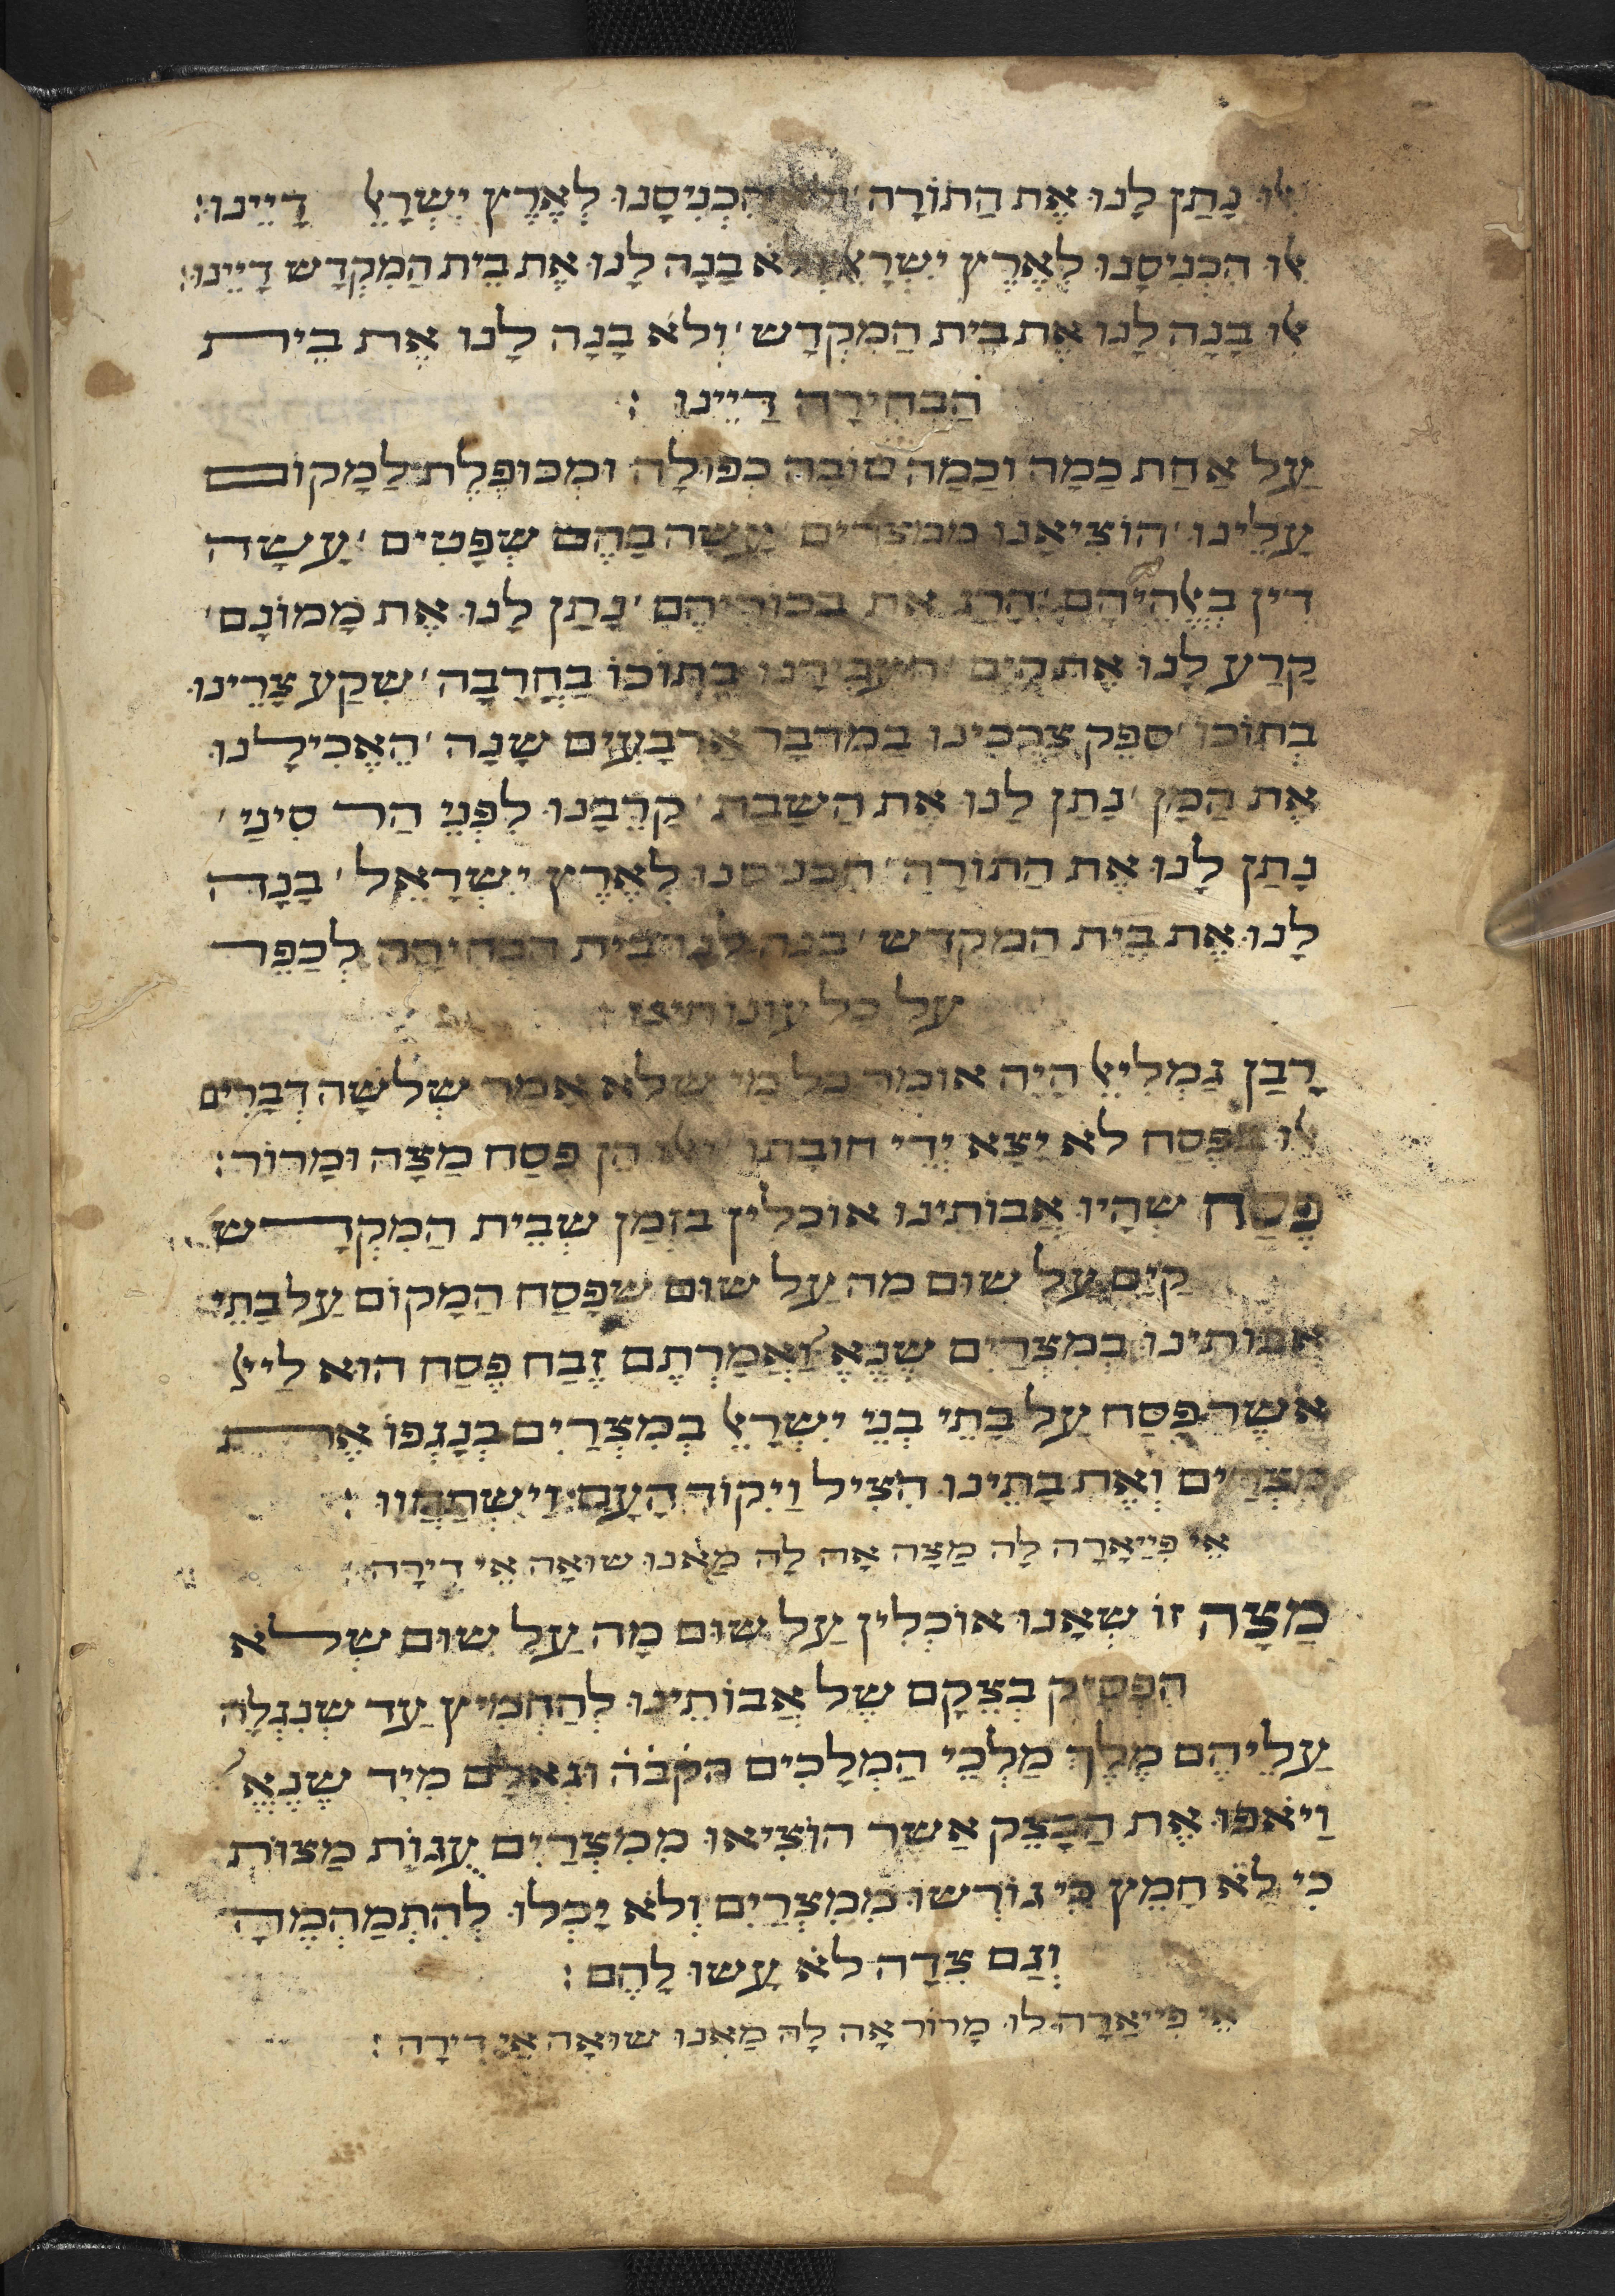 אִלּוּ נָתַן לָנוּ אֶת הַתּוֹרָה הִכְנִיסָנוּ לְאֶרֶץ יִשְׂרָאֵל דָּיֵינוּ:
אִלּוּ הִכְנִיסָנוּ לְאֶרֶץ יִשְׂרָאֵל וְלֹא בָנָה לָנוּ אֶת בֵּית הַמִקְדָשׁ דָיֵינוּ:
אִלּוּ בָנָה לָנוּ אֶת בֵּית הַמִקְדָשׁ׳ וְלֹא בָנָה לָנוּ אֶת בֵּית
הַבְּחִירָה דַיֵינוּ:
עַל אַחַת כַּמָה וְכַמָה טוֹבָה כְפוּלָה וּמְכוּפֶלֶת לַמָקוֹם
עָלֵינוּ׳ הוֹצִיאָנוּ מִמִצְרַיִם׳ עָשָה בָהֶם שְׁפָטִים׳ עָשָה
דִין בֵּאלֹהֵיהֶם׳ הָרַג אֶת בְּכוֹרֵיהֶם׳ נָתַן לָנוּ אֶת מָמוֹנָם׳
קָרַע לָנוּ אֶת הַיָם׳ הֶעֱבִירָנוּ בְתוֹכוֹ בַחֲרָבָה׳ שִׁקַע צָרֵינוּ
בְּתוֹכוֹ׳ סִפֵּק צָרְכֵינוּ בַּמִדְבָּר אַרְבָּעִים שָׁנָה׳ הֶאֱכִילָנוּ
אֶת הַמָן׳ נָתַן לָנוּ אֶת הַשַׁבָּת׳ קֵרְבָנוּ לִפְנֵי הַר סִינַי׳
נָתַן לָנוּ אֶת הַתּוֹרָה׳ הִכְנִיסָנוּ לְאֶרֶץ יִשְׂרָאֵל׳ בָנָה
לָנוּ אֶת בֵּית הַמִקְדָשׁ׳ בָּנָה לָנוּ בֵּית הַבְּחִירָה לְכַפֵּר
עַל כָּל עֲוֹנוֹתֵינוּ:
רַבָּן גַמְלִיאֵל הָיָה אוֹמֵר כָּל מִי שֶׁלֹא אָמַר שְׁלשָׁה דְבָרִים
אִלּוּ בַּפֶּסַח לֹא יָצָא יְדֵי חוֹבָתוֹ וְאִלּוּ הֵן פֶּסַח מַצָה וּמָרוֹר:
פֶּסַח שֶׁהָיוּ אֲבוֹתֵינוּ אוֹכְלִין בִּזְמַן שֶׁבֵּית הַמִקְדָשׁ
קַיָם עַל שׁוּם מַה עַל שׁוּם שֶׁפָּסַח הַמָקוֹם עַל בָּתֵּי
אֲבוֹתֵינוּ בְּמִצְרַיִם שֶׁנֶאֱ׳ וַאֲמַרְתֶם זֶבַח פֶּסַח הוּא לַייָ
אֲשֶׁר פָּסַח עַל בָּתֵי בְּנֵי יִשְׂרָאֵל בְּמִצְרַיִם בְּנָגְפּוֹ אֶת
מִצְרַיִם וְאֶת בָּתֵינוּ הִצִיל וַיִקוֹד הָעָם וַיִשְׁתַּחֲווּ:
אֵי פִּייַאָרָה לָה מַצָה אָה לָה מַאנוּ שׁוּאָה אֵי דִירָה:
מַצָה זוֹ שֶׁאָנוּ אוֹכְלִין עַל שׁוּם מָה עַל שׁוּם שֶׁלֹא
הִסְפִּיק בְּצֵקָם שֶׁל אֲבוֹתֵינוּ לְהַחְמִיץ עַד שֶׁנִגְלָה
עֲלֵיהֶם מֶלֶךְ מַלְכֵי הַמְלָכִים הקֹבֹהֹ וּגְאָלָם מִיָד שֶׁנֶאֱ׳
וַיֹאפוּ אֶת הַבָּצֵק אֲשֶׁר הוֹצִיאוּ מִמִצְרַיִם עֻגוֹת מַצוֹת
כִּי לֹא חָמֵץ כִּי גוֹרְשׁוּ מִמִצְרַיִם וְלֹא יָכְלוּ לְהִתְמַהְמֵהַּ
וְגַם צֵדָה לֹא עָשׂוּ לָהֶם:
אֵי פִּייַאָרָה לוּ מָרוֹר אָה לָה מַאנוּ שׁוּאָה אֵי דִירָה: